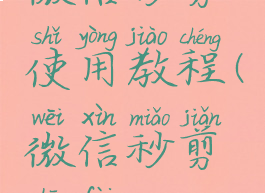 shǐ yòng jiào chéng
使用教程(
wēi xìn miǎo jiǎn
微信秒剪